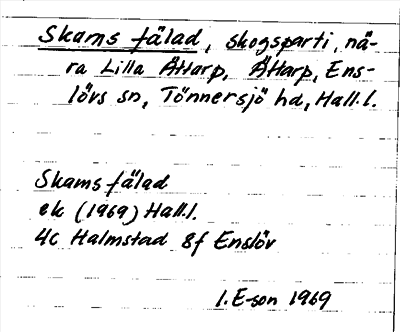 Skams fälad, skogsparti, nä-
ra Lilla Åttarp, Åttarp, Ens-
lövs sn, Tönnersjö hd, Hall.l.
Skams fälad
ek (1969) Hall.l.
4C Halmstad 8f Enslöv
I.E-son 1969